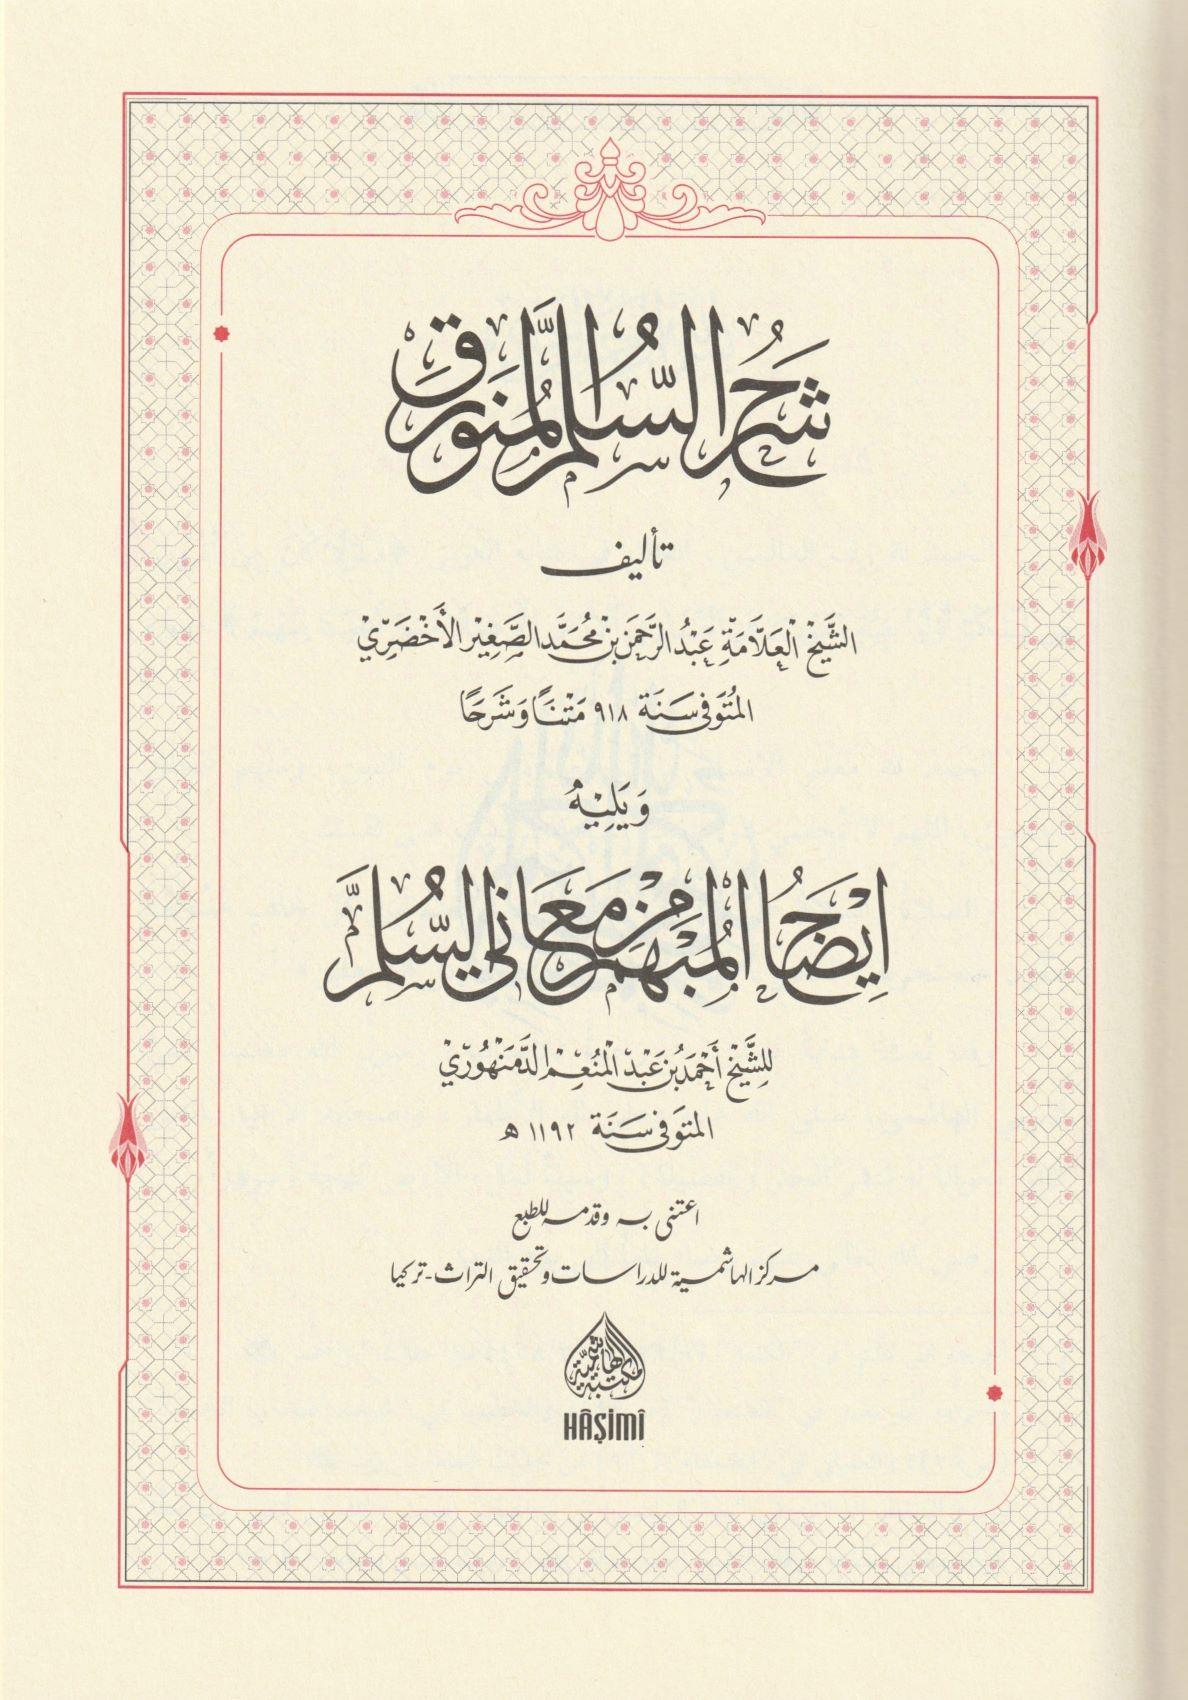 شَرْحُ السُّلَّمِ الْمُنَوْرَقِ
تأليف
الشَّيْخِ الْعَلَّامَةِ عَبْدُ الرَّحْمَنِ بْنِ مُحَمَّد الصَّغِيْرِ الأَخْضَرِيْ
المُتَوَفى سَنَة ٩١٨ مَتْنًا وَشَرَحًا
وَيَلِيْهُ
اِيْضَاحُ الْمُبْهَمْ مِنْ مَعَانِي السُّلَّمْ
لِلشَّيْخ أَحْمَدُ بْن عَبْدِ الْمُنْعِمْ الدَّمَنْهُوْرِيْ
المتوَفى سَنَة ١١٩٢ ه
اعتنى به وقدمه للطبع
مركز الهاشمية للدراسات وتحقيق التراث - تركيا
مكتبة الهاشمية
HÂŞİMÎ